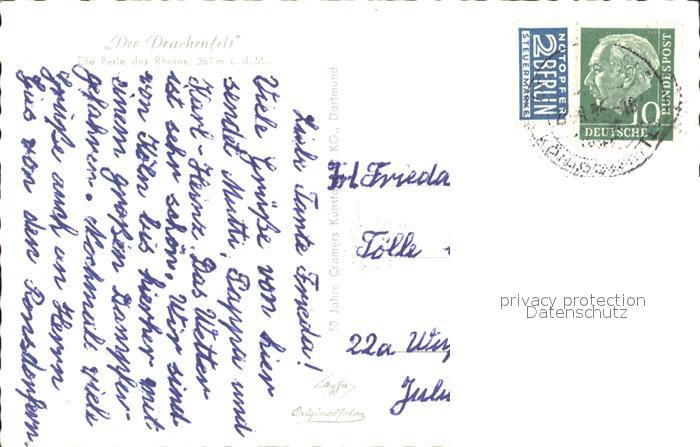 „Der Drachenfels“
Die Perle des Rheins, 367 m ü. d. M.
Liebe Tante Frieda!
Viele Grüße von hier
sendet Mutti, Pappa und
Karl-Heinz. Das Wetter
ist sehr schön. Wir sind
von Köln bis hierher mit
einem großen Dampfer
gefahren. Nochmals viele
Grüße auch an Herrn
von den Ronsdorfern.
50 Jahre Cramers Kunstanstalt KG., Dortmund
Cramers
Originalfoto
NOTOPFER
2 BERLIN
STEUERMARKE
10
DEUTSCHE
BUNDESPOST
Frl Frieda
Tölle
22a
Julu
privacy protection
Datenschutz